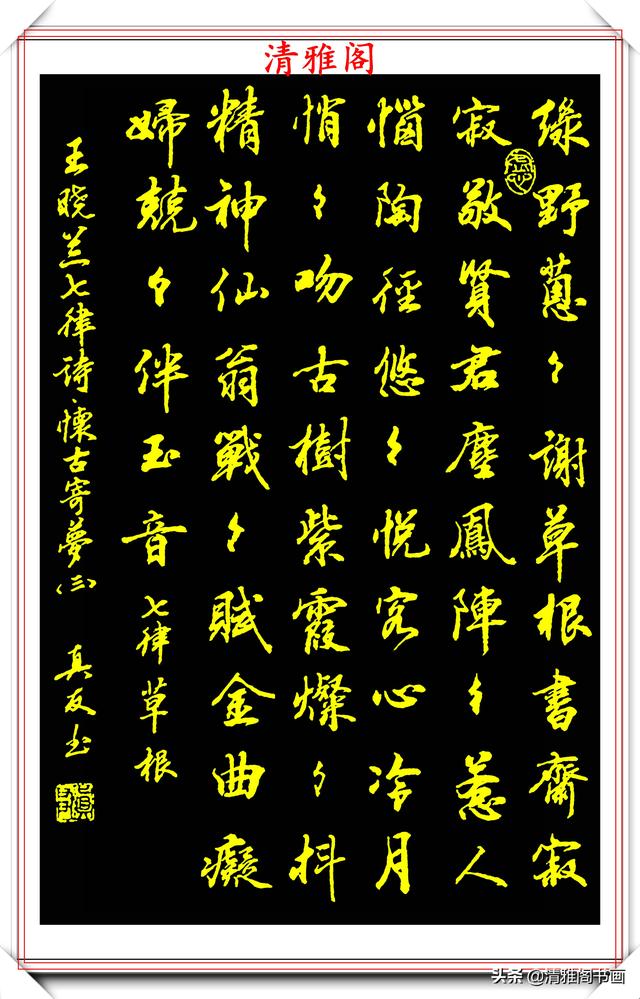 清雅阁
綠野蔥々謝草根書齋寂
寂敬賢君塵鳳陣々惹人
惱陶徑悠々悅客心冷月
悄々吻古樹紫霞燦々抖
精神仙翁戰々賦金曲癡
婦兢々伴玉音 七律草根
王晓兰七律诗·懷古寄夢(三) 真友书
头条 @清雅阁书画